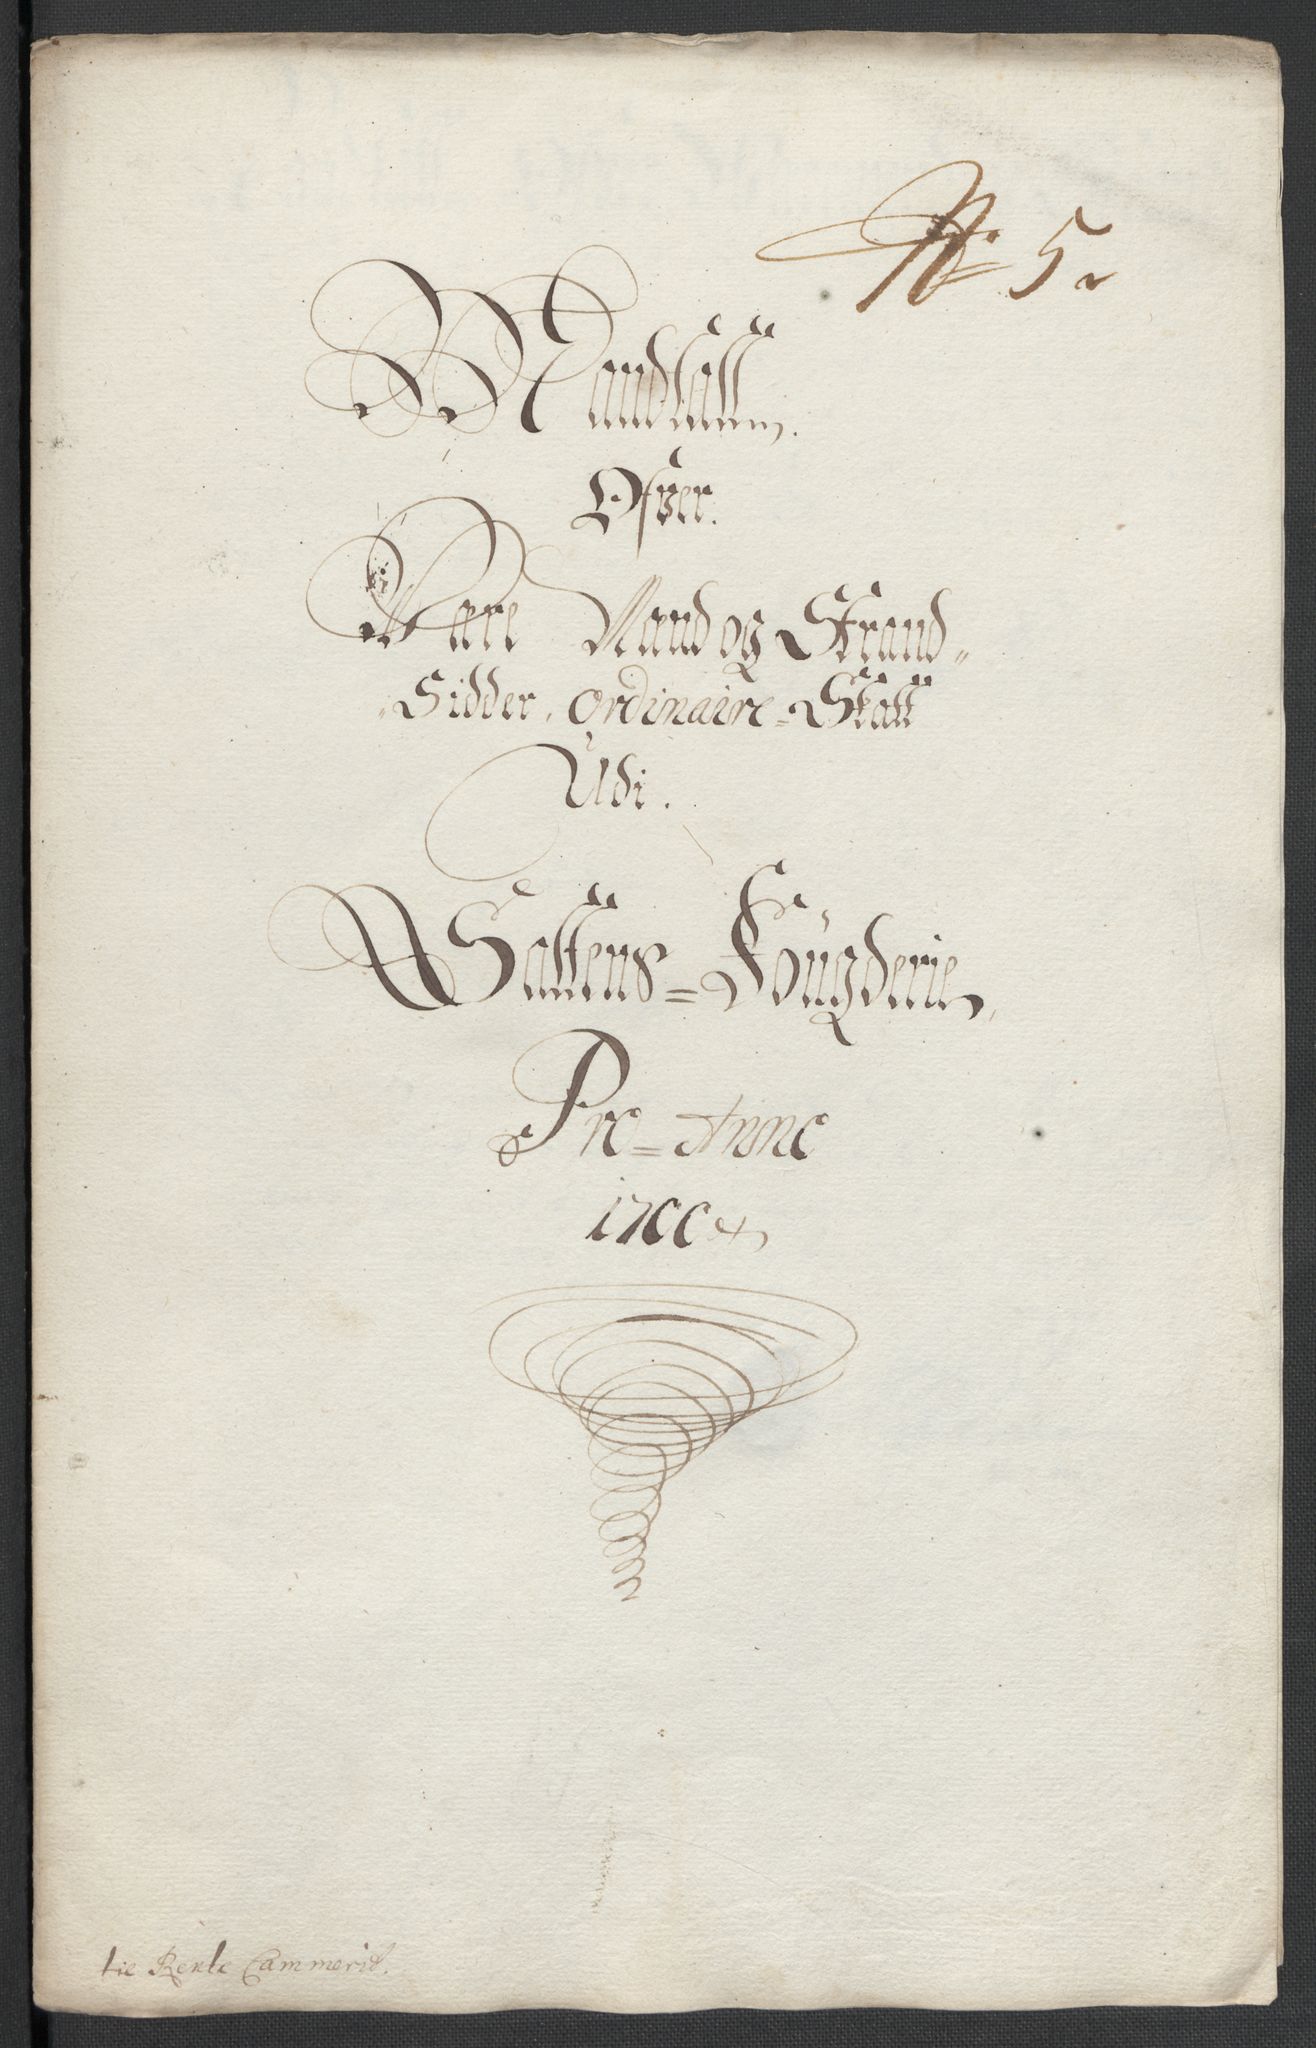 No 5
Mandtall
Ofver
Bare Mænd og Strand-
Sidder ordinaire=Skatt
Udi.
Saltens=Fougderie,
Pro=Anno
1700
tie Rente Cammerit.